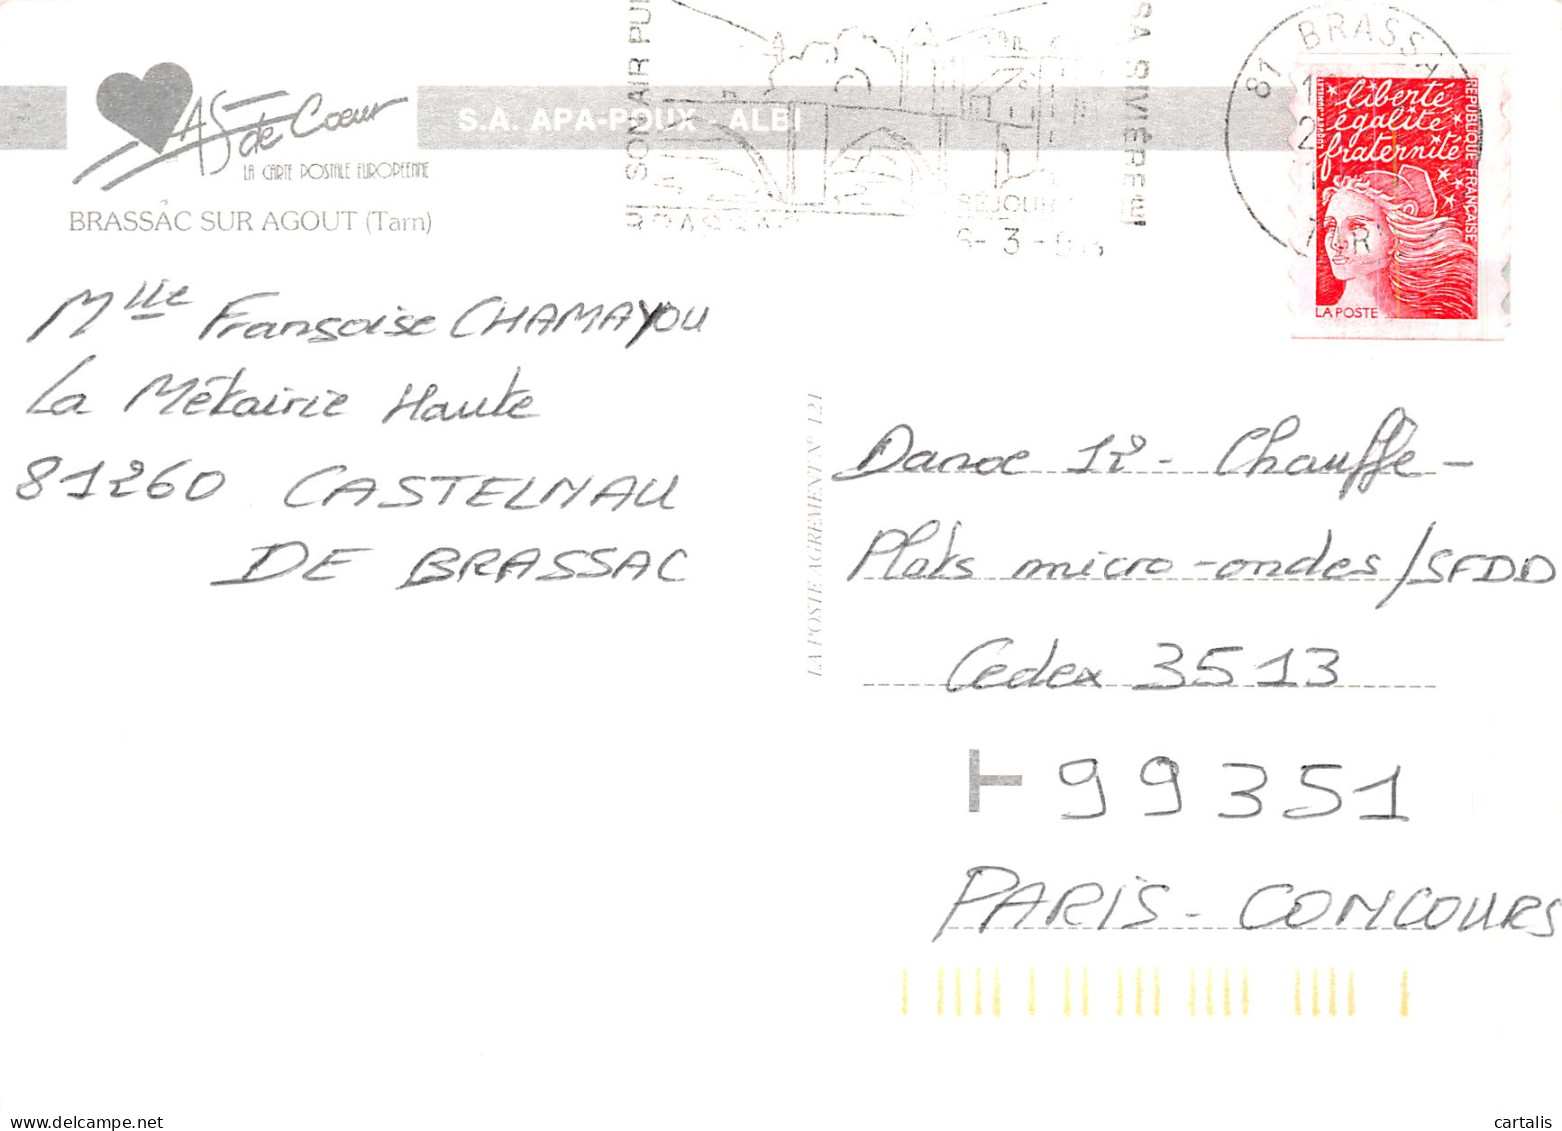 As de Coeur
LA CARTE POSTALE EUROPEENNE
S.A. APA-POUX - ALBI
BRASSAC SUR AGOUT (Tarn)
SON AIR PUR
SA RIVIÈRE
BRASSAC
SÉJOUR
81 BRASSA
liberté
égalité
fraternité
RÉPUBLIQUE FRANÇAISE
LA POSTE
Mlle Françoise CHAMAYOU
La Métairie Haute
81260 CASTELNAU
DE BRASSAC
LA POSTE AGREMENT N° 121
Danoe 12 - Chauffe -
Plats micro-ondes/SFDD
Cedex 3513
99351
PARIS - CONCOURS
www.cartalis.com
cartalis